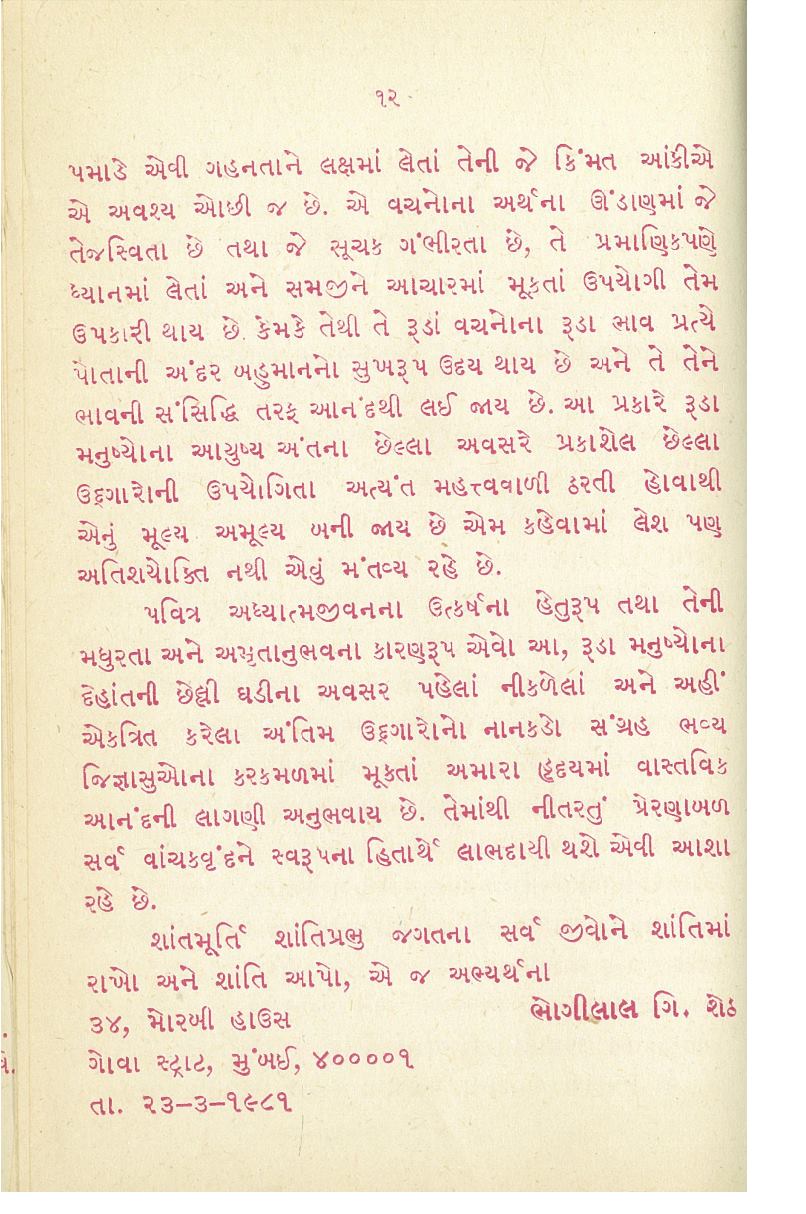 ૧૨
પમાડે એવી ગહનતાને લક્ષમાં લેતાં તેની જે કિંમત આંકીએ
એ અવશ્ય ઓછી જ છે. એ વચનોના અર્થના ઊંડાણમાં જે
તેજસ્વિતા છે તથા જે સૂચક ગંભીરતા છે, તે પ્રમાણિકપણે
ધ્યાનમાં લેતાં અને સમજીને આચારમાં મૂકતાં ઉપયોગી તેમ
ઉપકારી થાય છે. કેમકે તેથી તે રૂડાં વચનોના રૂડા ભાવ પ્રત્યે
પોતાની અંદર બહુમાનનો સુખરૂપ ઉદય થાય છે અને તે તેને
ભાવની સંસિદ્ધિ તરફ આનંદથી લઈ જાય છે. આ પ્રકારે રૂડા
મનુષ્યોના આયુષ્ય અંતના છેલ્લા અવસરે પ્રકાશેલ છેલ્લા
ઉદ્‌ગારોની ઉપયોગિતા અત્યંત મહત્ત્વવાળી ઠરતી હોવાથી
એનું મૂલ્ય અમૂલ્ય બની જાય છે એમ કહેવામાં લેશ પણ
અતિશયોક્તિ નથી એવું મંતવ્ય રહે છે.
પવિત્ર અધ્યાત્મજીવનના ઉત્કર્ષના હેતુરૂપ તથા તેની
મધુરતા અને અમૃતાનુભવના કારણરૂપ એવો આ, રૂડા મનુષ્યોના
દેહાંતની છેલ્લી ઘડીના અવસર પહેલાં નીકળેલાં અને અહીં
એકત્રિત કરેલા અંતિમ ઉદ્‌ગારોનો નાનકડો સંગ્રહ ભવ્ય
જિજ્ઞાસુઓના કરકમળમાં મૂકતાં અમારા હૃદયમાં વાસ્તવિક
આનંદની લાગણી અનુભવાય છે. તેમાંથી નીતરતું પ્રેરણાબળ
સર્વ વાંચકવૃંદને સ્વરૂપના હિતાર્થે લાભદાયી થશે એવી આશા
રહે છે.
શાંતમૂર્તિ શાંતિપ્રભુ જગતના સર્વ જીવોને શાંતિમાં
રાખો અને શાંતિ આપો, એ જ અભ્યર્થના
૩૪, મોરબી હાઉસ ભોગીલાલ ગિ. શેઠ
ગોવા સ્ટ્રીટ, મુંબઈ, ૪૦૦૦૦૧
તા. ૨૩-૩-૧૯૮૧